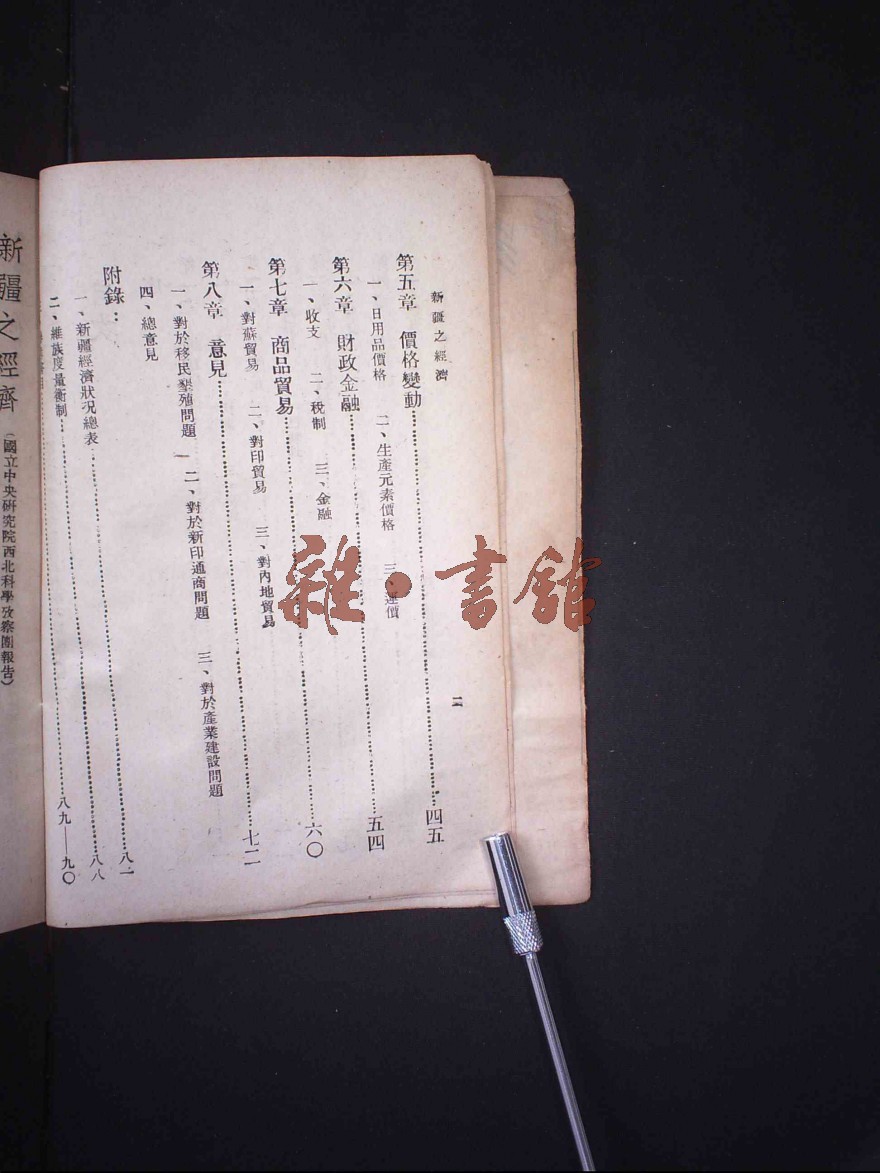 新疆之經濟 二
第五章 價格變動……四五
一、日用品價格 二、生產元素價格 三、運價
第六章 財政金融……五四
一、收支 二、稅制 三、金融
第七章 商品貿易……六〇
一、對蘇貿易 二、對印貿易 三、對內地貿易
第八章 意見……七二
一、對於移民墾殖問題 二、對於新印通商問題 三、對於產業建設問題
四、總意見
附錄：……八一
一、新疆經濟狀况總表……八八
二、維族度量衡制……八九—九〇
新疆之經濟（國立中央研究院西北科學攷察團報告）
雜·書館